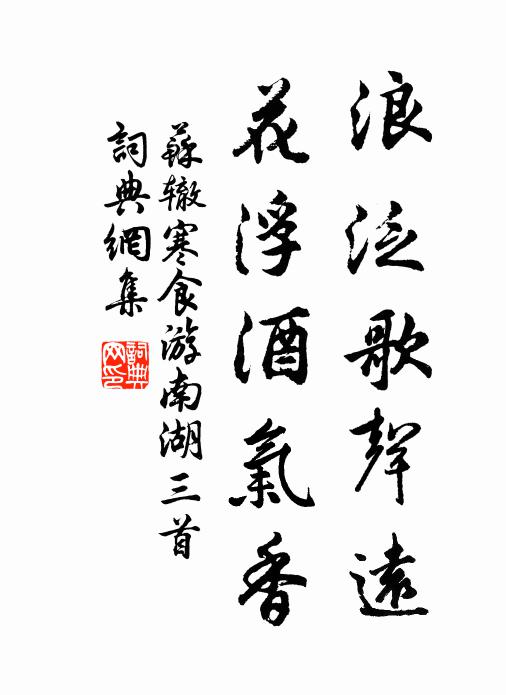 浪泛歌聲遠
花浮酒氣香
蘇辙寒食游南湖三首
詞典網集
詞典网印